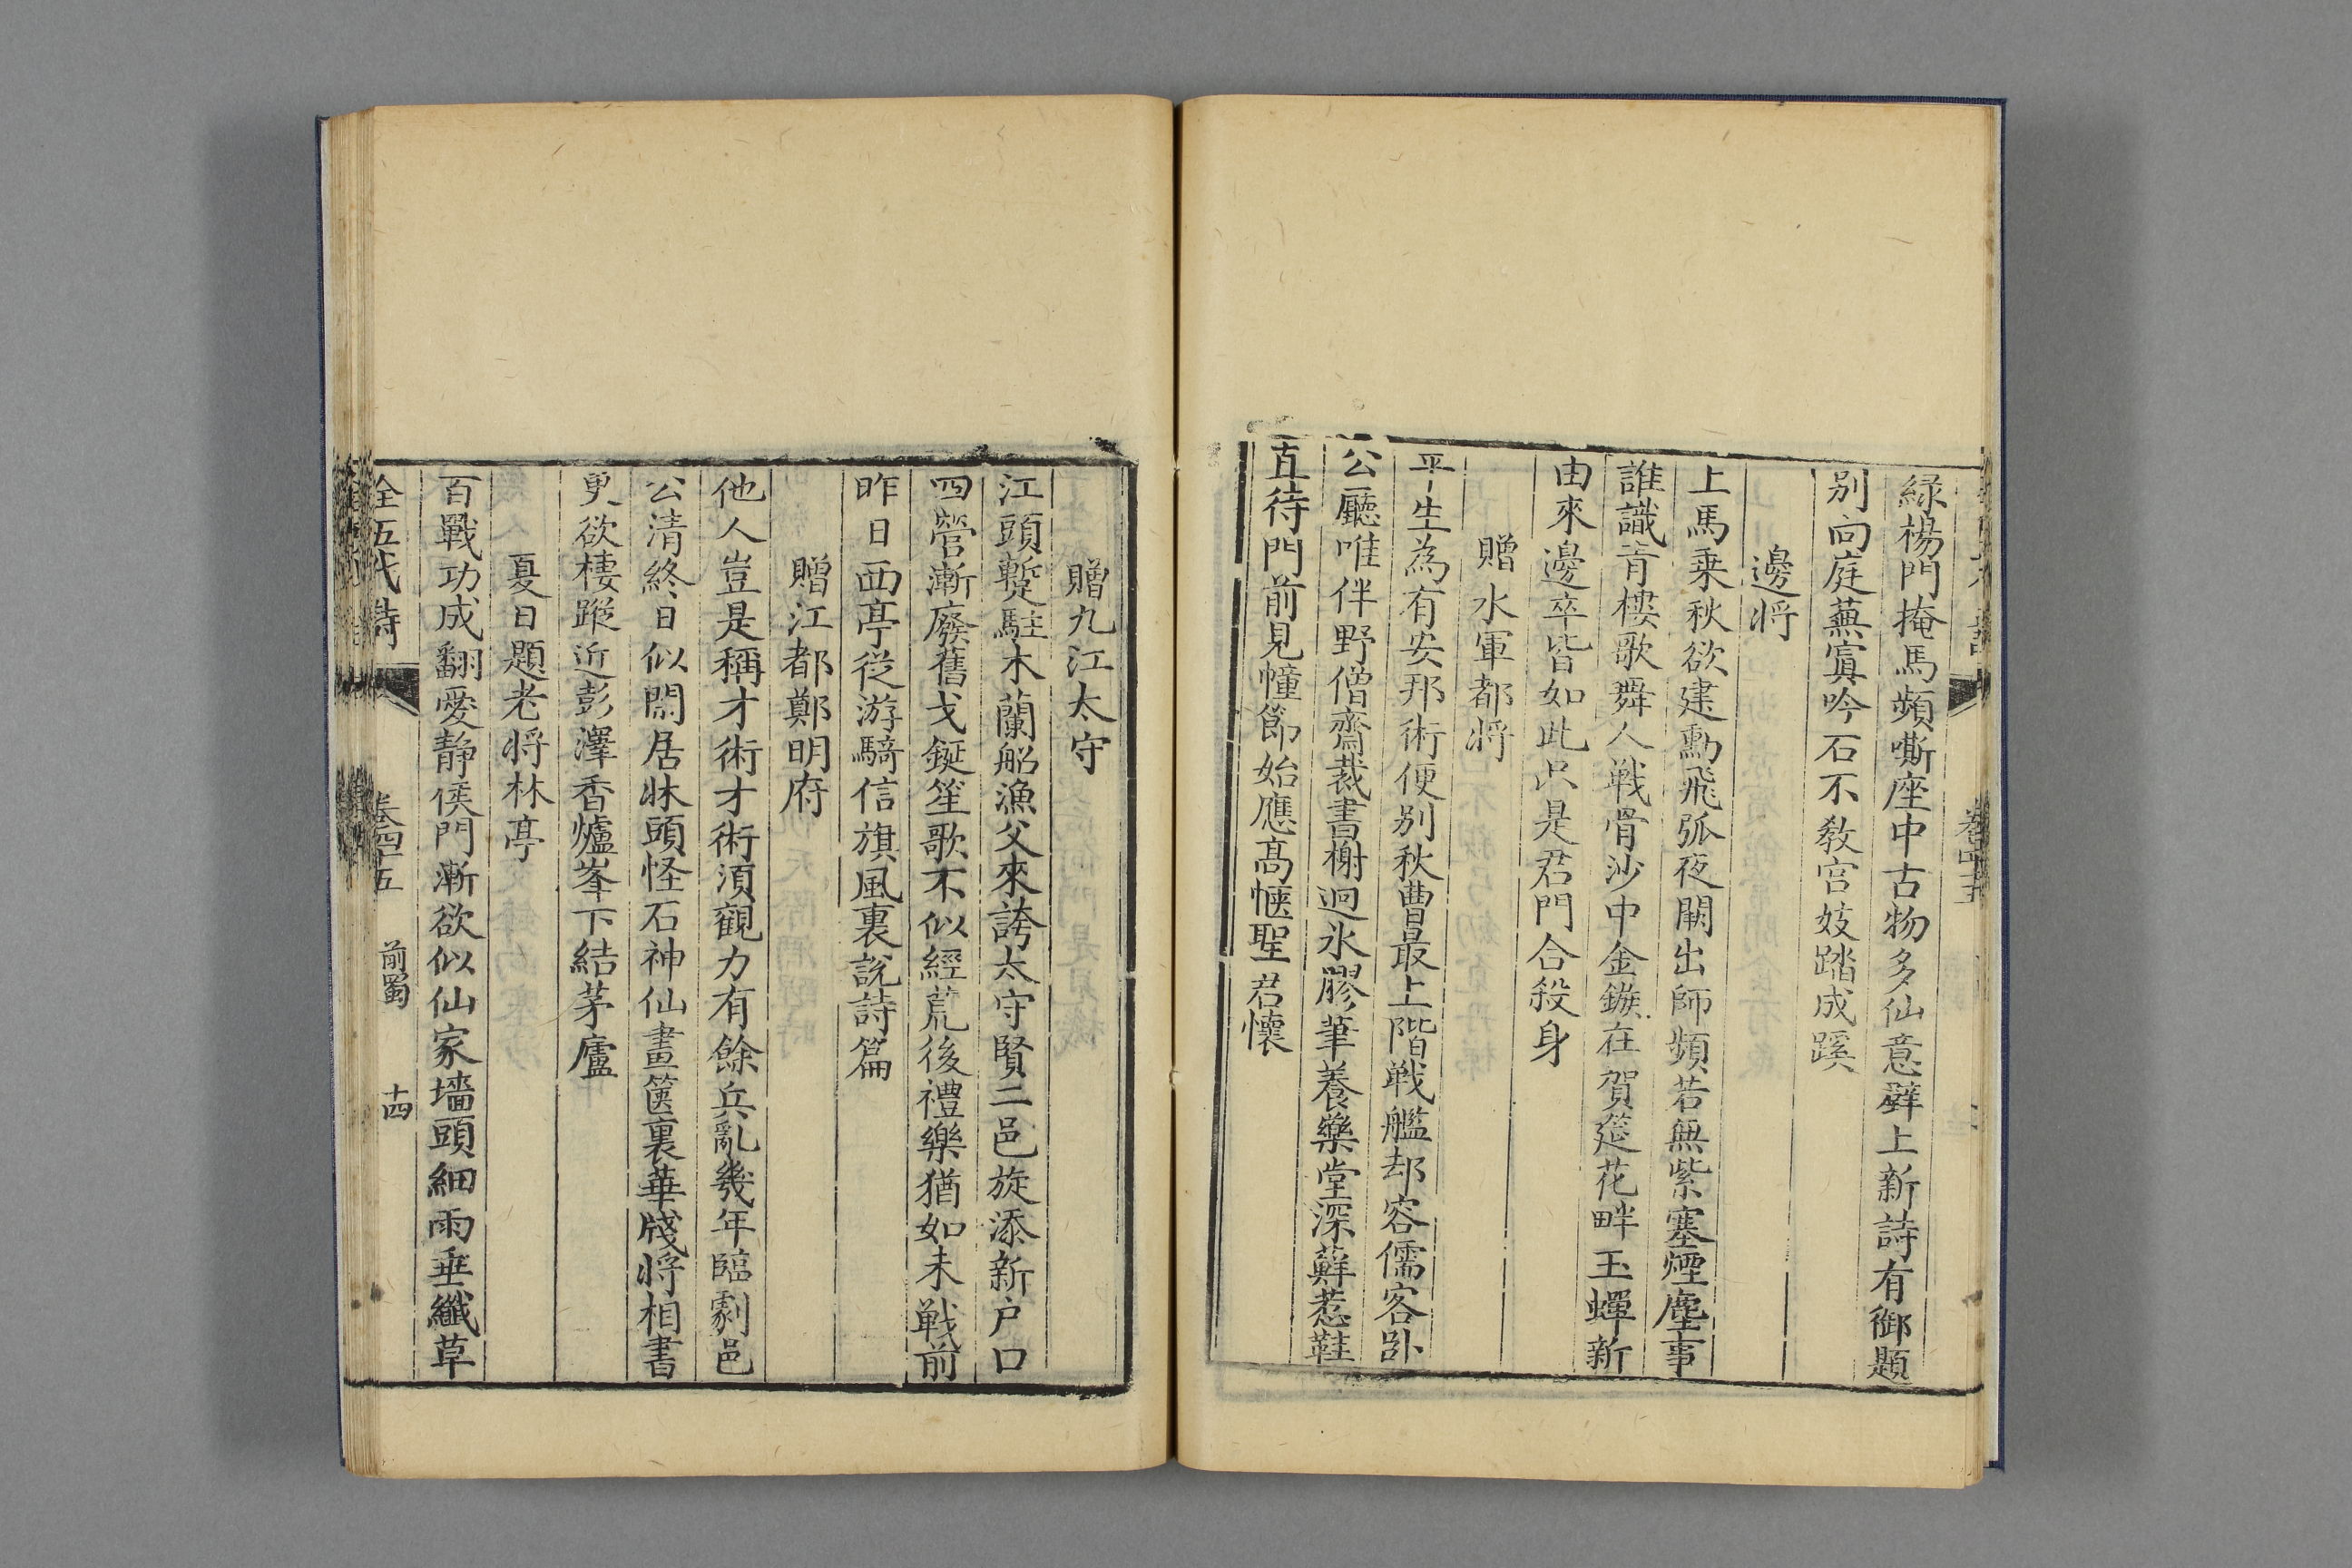 綠楊門掩馬頻嘶座中古物多仙意壁上新詩有御題
別向庭蕪寘吟石不教宮妓踏成蹊
邊將
上馬乗秋欲建勳飛弧夜闕出師頻若無紫塞煙塵事
誰識青樓歌舞人戦骨沙中金鏃在賀筵花畔玉蟬新
由來邊卒皆如此只是君門合殺身
贈水軍都將
平生為有安邦術便別秋曹最上階戦艦却容儒客卧
公廳唯伴野僧齋裁書榭迥氷膠筆養藥堂深蘚惹鞋
直待門前見幢節始應高愜聖君懷
贈九江太守
江頭蹔駐木蘭船漁父來誇太守賢二邑旋添新户口
四營漸廢舊戈鋋笙歌不似經荒後禮樂猶如未戦前
昨日西亭從游騎信旗風裏說詩篇
贈江都鄭明府
他人豈是稱才術才術須觀力有餘兵亂幾年臨劇邑
公清終日似閑居牀頭怪石神仙畫篋裏華牋將相書
更欲棲蹤近彭澤香爐峯下結茅廬
夏日題老將林亭
百戰功成翻愛静侯門漸欲似仙家墻頭細雨垂纖草
全五代詩 卷四十五 前蜀 十四